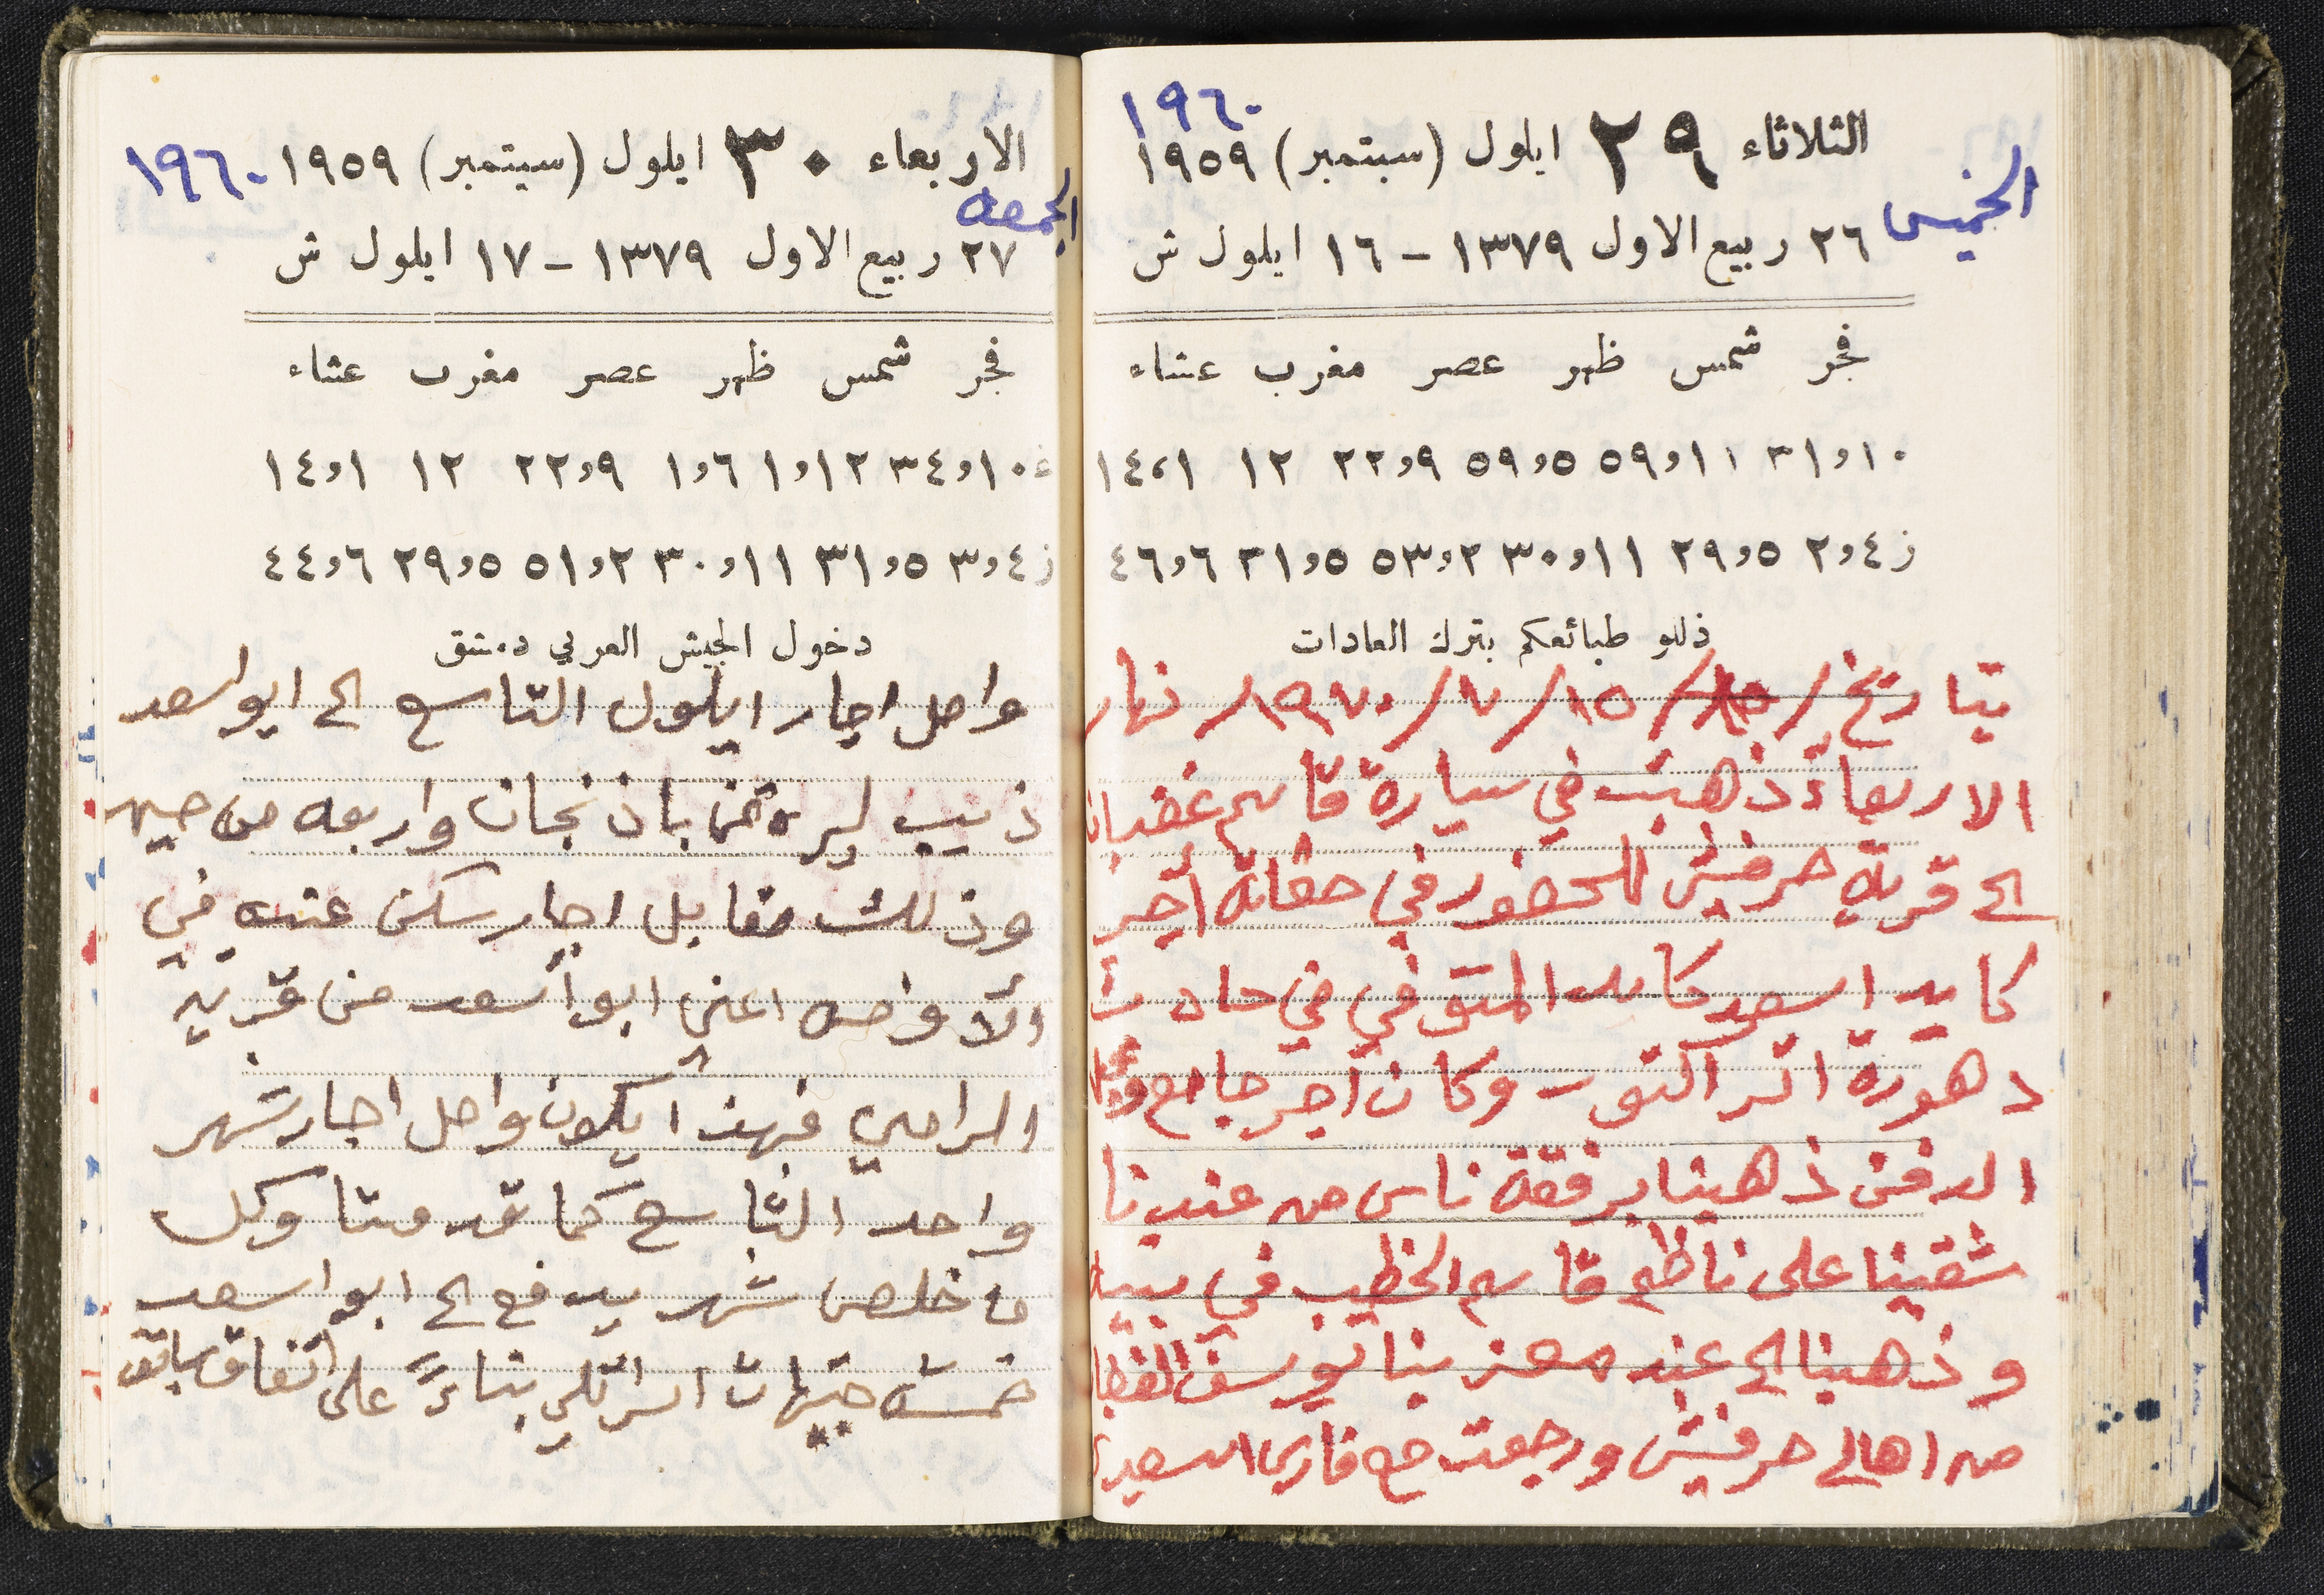 ١٩٦٠
الثلاثاء ٢٩ ايلول (سبتمبر) ١٩٥٩
الخميس
٢٦ ربيع الاول ١٣٧٩ – ١٦ ايلول ش
فجر شمس ظهر عصر مغرب عشاء
١٠و٣١ ١١و٥٩ ٥و٥٩ ٩و٢٢ ١٢ ١و١٤
ز ٤و٢ ٥و٢٩ ١١و٣٠ ٢و٥٣ ٥و٣١ ٦و٤٦
ذللو طبائعكم بترك العادات
بتاريخ / ١٥/٧/١٩٧٠/ نهار
الاربعاء ذهبت في سيارة قاسم غضبان
الى قرية حرفيش للحضور في آجر
كايد اسعد كايد المتوفي في حادث
دهورة اتراكتور وكان آجر جامع
الدفن ذهبنا برفقة ناس من عندنا
شقينا على ناظم قاسم الخطيب في
وذهبنا الى عند معزبنا يوسف
من اهالي حرفيش ورجعت مع فارس اسعد
الاربعاء ٣٠ ايلول (سبتمبر) ١٩٥٩ ١٩٦٠
الجمعه
٢٧ ربيع الاول ١٣٧٩ – ١٧ ايلول ش
فجر شمس ظهر عصر مغرب عشاء
ع ١٠و٣٤ ١٢و١ ٦و١ ٩و٢٢ ١٢ ١و١٤
ز ٤و٣ ٥و٣١ ١١و٣٠ ٢و٥١ ٥و٢٩ ٦و٤٤
دخول الجيش العربي دمشق
واصل اجار ايلول التاسع الى ابو اسعد
ذيب ليره ثمن باذنجان واربعه من
وذلك مقابل اجار سكن عنده في
اعني ابو أسعد من قرية
الرامي فهذا يكون واصل اجار شهر
واحد التاسع كما تقدمنا وكل
ما خلص شهر يدفع الى ابو اسعد
خمسة جنيهات اسرائلي بناءً على اتفاق سابق